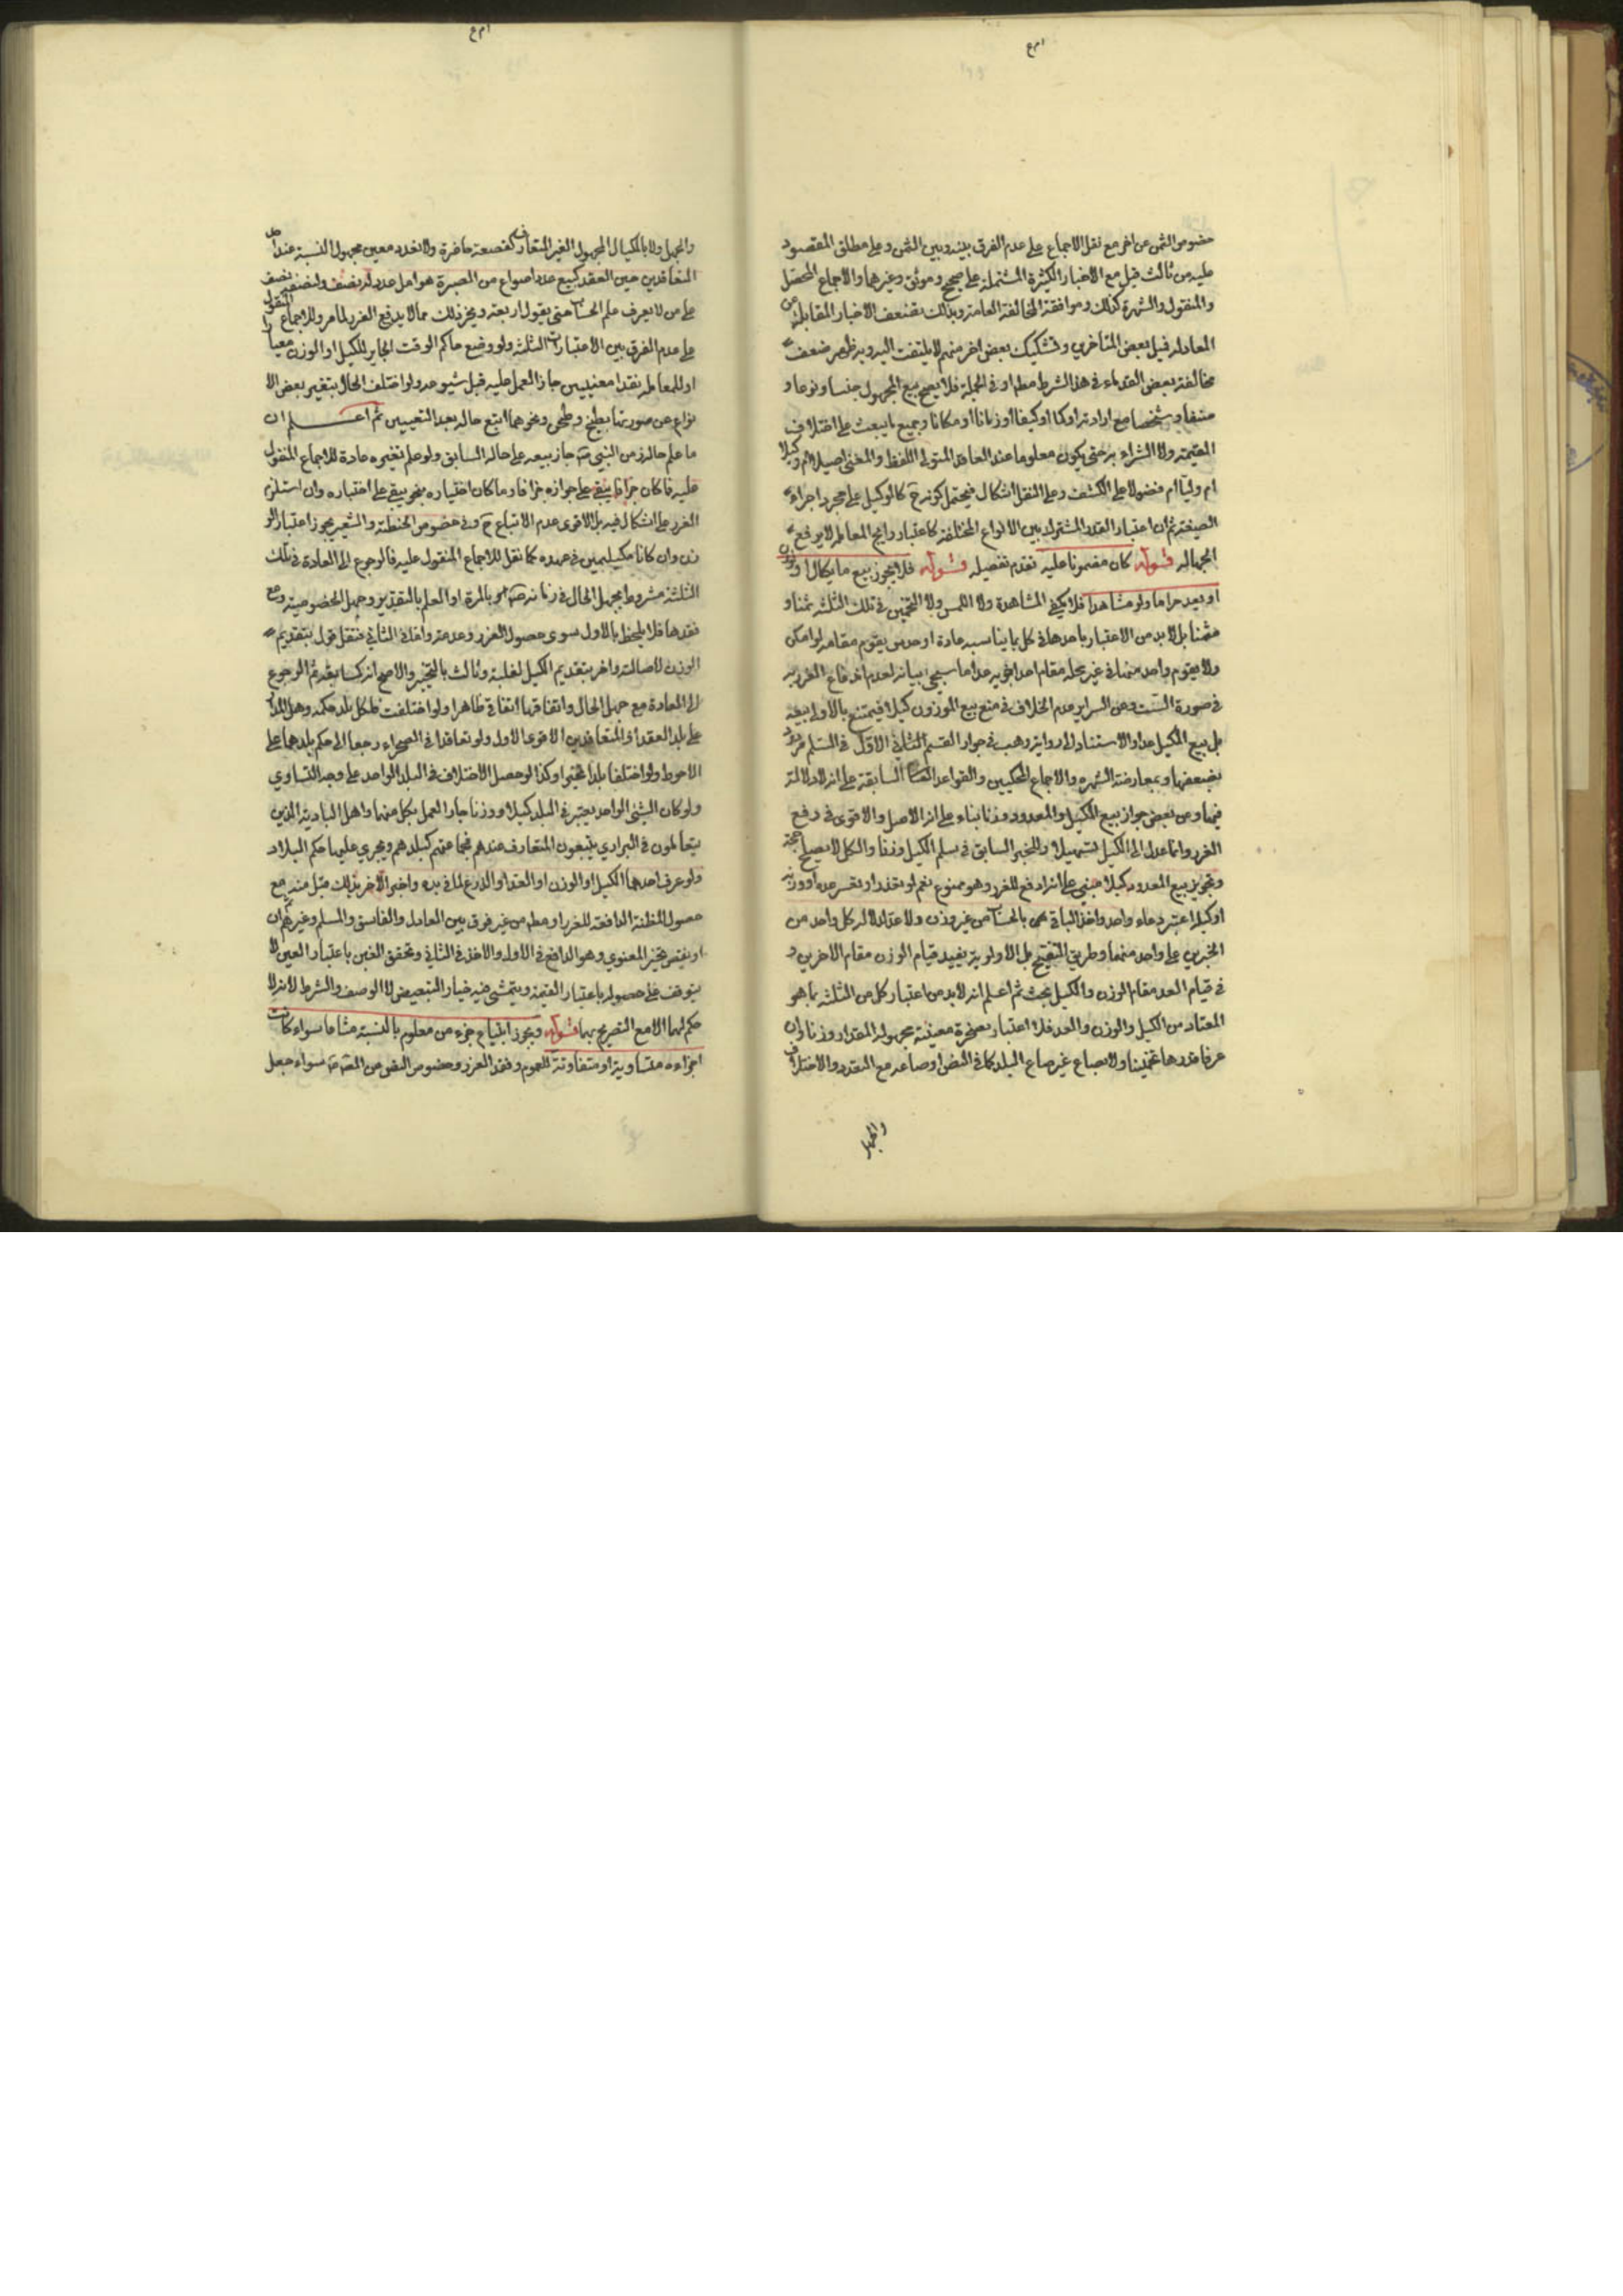 خصوص الثمن عن اخر مع نقل الاجماع على عدم الفرق بينه وبين الثمن وعلى مطلق المقصود
عليه من ثالث قبل مع الاخبار الكثيرة المشتملة على صحيح وموثق وغيرهما والاجماع المحصل
والمنقول والشهرة كذلك وموافقة المخالفة العامة وبذلك تضعف الاخبار المقابلة عن
المعادلة فميل بعض المتأخرين وتشكيك بعض اخر منهم لا يلتفت اليه وبه ظهر ضعف
مخالفة بعض القدماء في هذا الشرط مطلقا او في الجملة فلا يصح بيع المجهول جنسا ونوعا و
صنفا وشخصا مع ارادته او كما او كيفا او زمانا او مكانا وجميع ما يبعث على اختلاف
القيمة ولا الشراء به حتى يكون معلوما عند العاقد المتولي اللفظ والمعنى اصيلا ام وكيلا
ام وليا ام فضولا على الكشف وعلى النقل اشكال فيحتمل كونه ح كالوكيل على مجرد اجراء
الصيغة ثم ان اعتبار القدر المشترك بين الانواع المختلفة كاعتبار رايج المعاملة لا يرفع
الجهالة قوله كان مضمونا عليه تقدم تفصيله قوله فلا يجوز بيع ما يكال او يوزن
او يعد جزافا ولو مشاهدا فلا يكفي المشاهدة ولا اللمس ولا التخمين في تلك الثلثة ثمنا و
مثمنا بل لا بد من الاعتبار باحدها في كل بما يناسبه عادة او حدس يقوم مقامه لو امكن
ولا يقوم واحد منها في غير محله مقام احد اخويه عدا ما سيجئ بيانه لعدم اندفاع الغرر به
في صورة الشك وعن السرائر عدم الخلاف في منع بيع الموزون كيلا فيمتنع بالاولى بيعه
بل بيع المكيل عدا والاستناد الى رواية وهب في جواز القسم الثاني الاول في السلم مردود
بضعفها وبمعارضة الشهرة والاجماع المحكيين والقواعد السابقة على انه لا دلالة
فيها وعن بعض جواز بيع المكيل والمعدود وزنا بناء على انه الاصل والاقوى في رفع
الغرر وانما عدل الى الكيل تسهيلا وللخبر السابق في سلم الكيل وزنا والكل لا يصلح حجة
وتجويز بيع المعدود كيلا مبني على انه ادفع للغرر وهو ممنوع نعم لو تعذر او تعسر عده او وزنه
او كيله اعتبر وعاء واحد واخذ الباقي بالحساب من غير وزن ولا عد لدلالة كل واحد من
الخبرين على واحد منهما وطريق التنقيح بل الاولوية يفيد قيام الوزن مقام الاخرين و
في قيام العد مقام الوزن والكيل بحث ثم اعلم انه لا بد من اعتبار كل من الثلثة بما هو
المعتاد من الكيل والوزن والعد فلا اعتبار بصخرة معينة مجهولة المقدار وزنا وان
عرفا قدرها تخمينا ولا بصاع غير صاع البلد كما في النص او صاعه مع التعدد والاختلاف
والجهل
والجهل ولا بالمكيال المجهول الغير المتعارف كقصعة حاضرة ولا بعدد معين مجهول النسبة عند احد
المتعاقدين حين العقد كبيع عدد اصواع من الصبرة هو اول عدد له نصف ولنصفه نصف
على من لا يعرف علم الحساب حتى يقول اربعة ونحو ذلك مما لا يدفع الغرر لما مر وللاجماع المنقول
على عدم الفرق بين الاعتبارات الثلثة ولو وضع حاكم الوقت الجاير للكيل او الوزن معيارا
او للمعاملة نقدا معينيين جاز العمل عليه قبل شيوعه ولو اختلف الحال بتغير بعض الا
نواع عن صورتها بطبخ وطحن ونحوهما اتبع حاله بعد التغيير ثم اعلم ان
ما علم حاله زمن النبي ص جاز بيعه على حاله السابق ولو علم تغيره عادة للاجماع المنقول
عليه فما كان جزافا يبقى على جوازه جزافا وما كان اختياره بنحو يبقى على اختباره وان استلزم
الغرر على اشكال فيه بل الاقوى عدم الاتباع ح وفي خصوص الحنطة والشعير يجوز اعتبار الو
زن وان كانا مكيليين في عهده كما نقل للاجماع المنقول عليه فالرجوع الى العادة في تلك
الثلثة مشروط بجهل الحال في زمانه ص هو بالمرة او العلم بالتقدير وجهل الخصوصية ومع
فقدها فلا يلحظ بالاول سوى حصول الغرر وعدمه واما في الثاني فنقل قول بتقديم
الوزن لاصالته واخر بتقديم الكيل لغلبته وثالث بالتخيير والاصح انه كسابقه ثم الرجوع
الى العادة مع جهل الحال واتفاقها اتفاقي ظاهرا ولو اختلفت فلكل بلد حكمه وهل المدار
على بلد العقد او المتعاقدين الاقوى الاول ولو تعاقدا في الصحراء رجعا الى حكم بلدهما على
الاحوط ولو اختلفا بلدا تخيرا وكذا لو حصل الاختلاف في البلد الواحد على وجه التساوي
ولو كان الشئ الواحد يعتبر في البلد كيلا ووزنا جاز العمل بكل منهما واهل البادية الذين
يتعاملون في البراري يتبعون المتعارف عندهم فجماعتهم كبلدهم ويجري عليها حكم البلاد
ولو عرف احدهما الكيل او الوزن او العد او الذرع لما في يده واخبر الاخر بذلك قبل منه مع
حصول المظنة الدافعة للغرر او مطلقا من غير فرق بين العادل والفاسق والمسلم وغيرهم ثم ان
او نقص تخير المغبون وهو الدافع في الاول والاخذ في الثاني وتحقق الغبن باعتبار العين لا
يتوقف على حصوله باعتبار القيمة ويتمشى فيه خيار التبعيض لا الوصف والشرط لانه لا
حكم لهما الا مع التصريح بهما قوله ويجوز ابتياع جزء من معلوم بالنسبة مشاعا سواء كانت
اجزاءه متساوية او متفاوتة للعموم وفقد الغرر وخصوص النص من سواء جعل